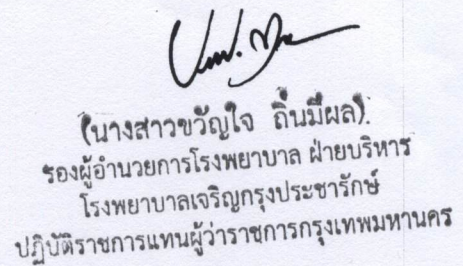 (นางสาวขวัญใจ ถิ่นมีผล).
รองผู้อำนวยการโรงพยาบาล ฝ่ายบริหาร
โรงพยาบาลเจริญกรุงประชารักษ์
ปฏิบัติราชการแทนผู้ว่าราชการกรุงเทพมหานคร